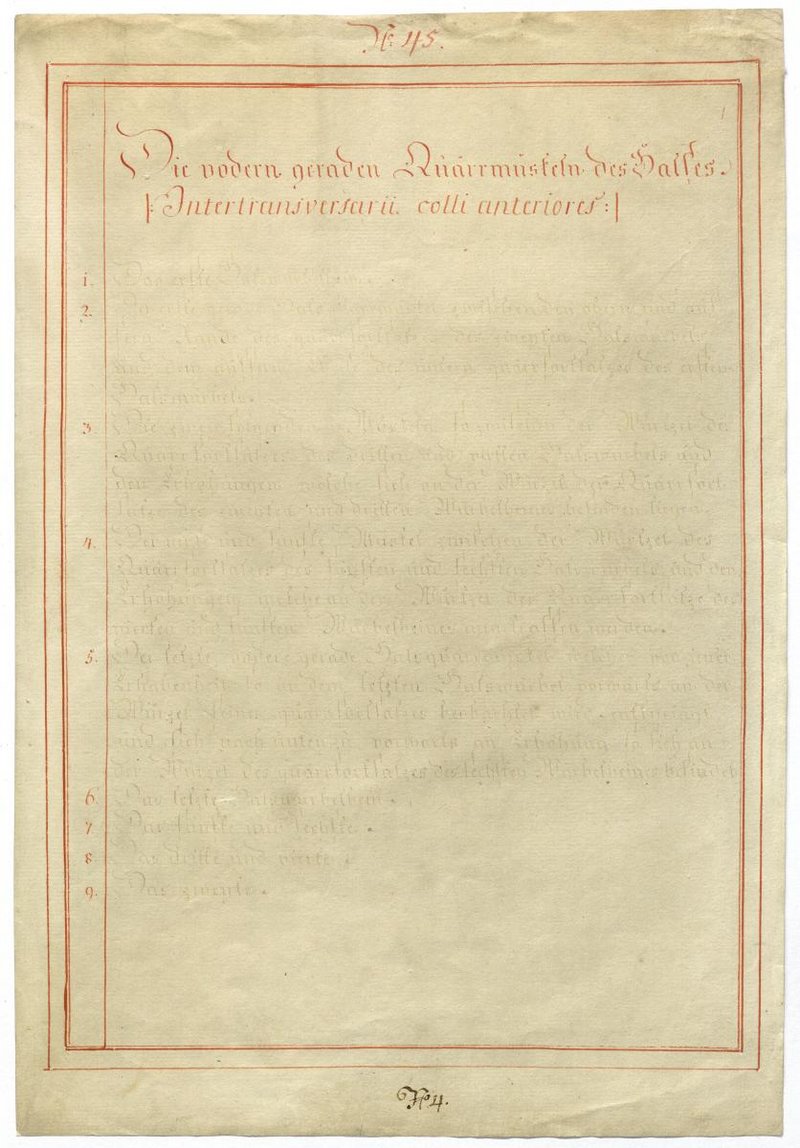 No. 45.
Die vodern geraden Quärrmuskeln des Halses.
|: Intertransversarii colli anteriores :|
1. Das erste Halswürbelbein.
2. Der erste gerade Hals zwischen den obern und äus-
sern Rande des quärfortsatzes des zweyten Halswürbels
und dem äussern Theile des untern quärfortsatzes des ersten
Halswürbels.
3. Die zwey folgenden Muskeln so zwischen der Würzel der
Quärrfortsätzes des dritten und vierten Halswürbels und
den Erhöhungen welche sich an der Würzel der Quärrfort
sätze des zweyten und dritten Würbelbeines befinden liegen.
4. Der vierte und fünfte Muskel zwischen der Würzel des
Quärrfortsatzes des fünften und sechsten Halswürbels und den
Erhöhungen welche an der Würzel der Quärrfortsätze des
vierten und fünften Würbelbeines angetroffen werden.
5. Der letzte vodere gerade Halsquärrmuskel welcher von einer
Erhabenheit so an dem letzten Halswürbel vorwärts an der
Würzel seines quärrfortsatzes beobachtet wird entspringt
und sich nach unten zu vorwärts an Erhöhung so sich an
der Würzel des quärrfortsatzes des sechsten Würbelbeines befindet
6. Das letzte Halswürbelbein.
7. Das fünfte und sechste.
8. Das dritte und vierte.
9. Das zweyte.
No 4.